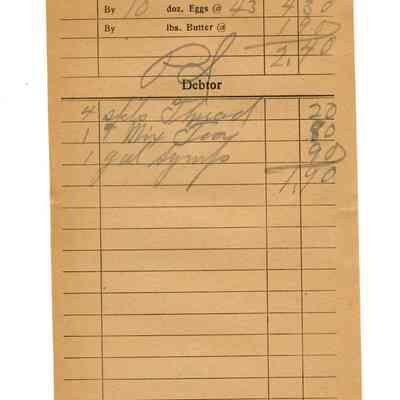 By 10 doz. Eggs @ 43 4 30
By lbs. Butter @ 1 90
2.40
Debtor
4 spls Thread 20
1 80
1 gal syrup 90
1,90